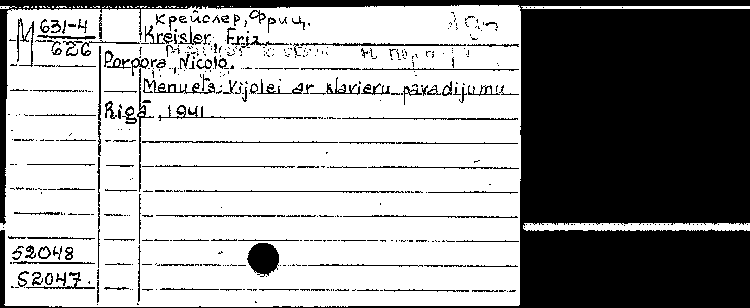 Крейслер, Фриц.
M 631-4
626
Kreisler Friz
Porpora, Nicolo.
Menuets: Vijolei ar klavieru pavadijumu
Rigā, 1941
52048
52047.